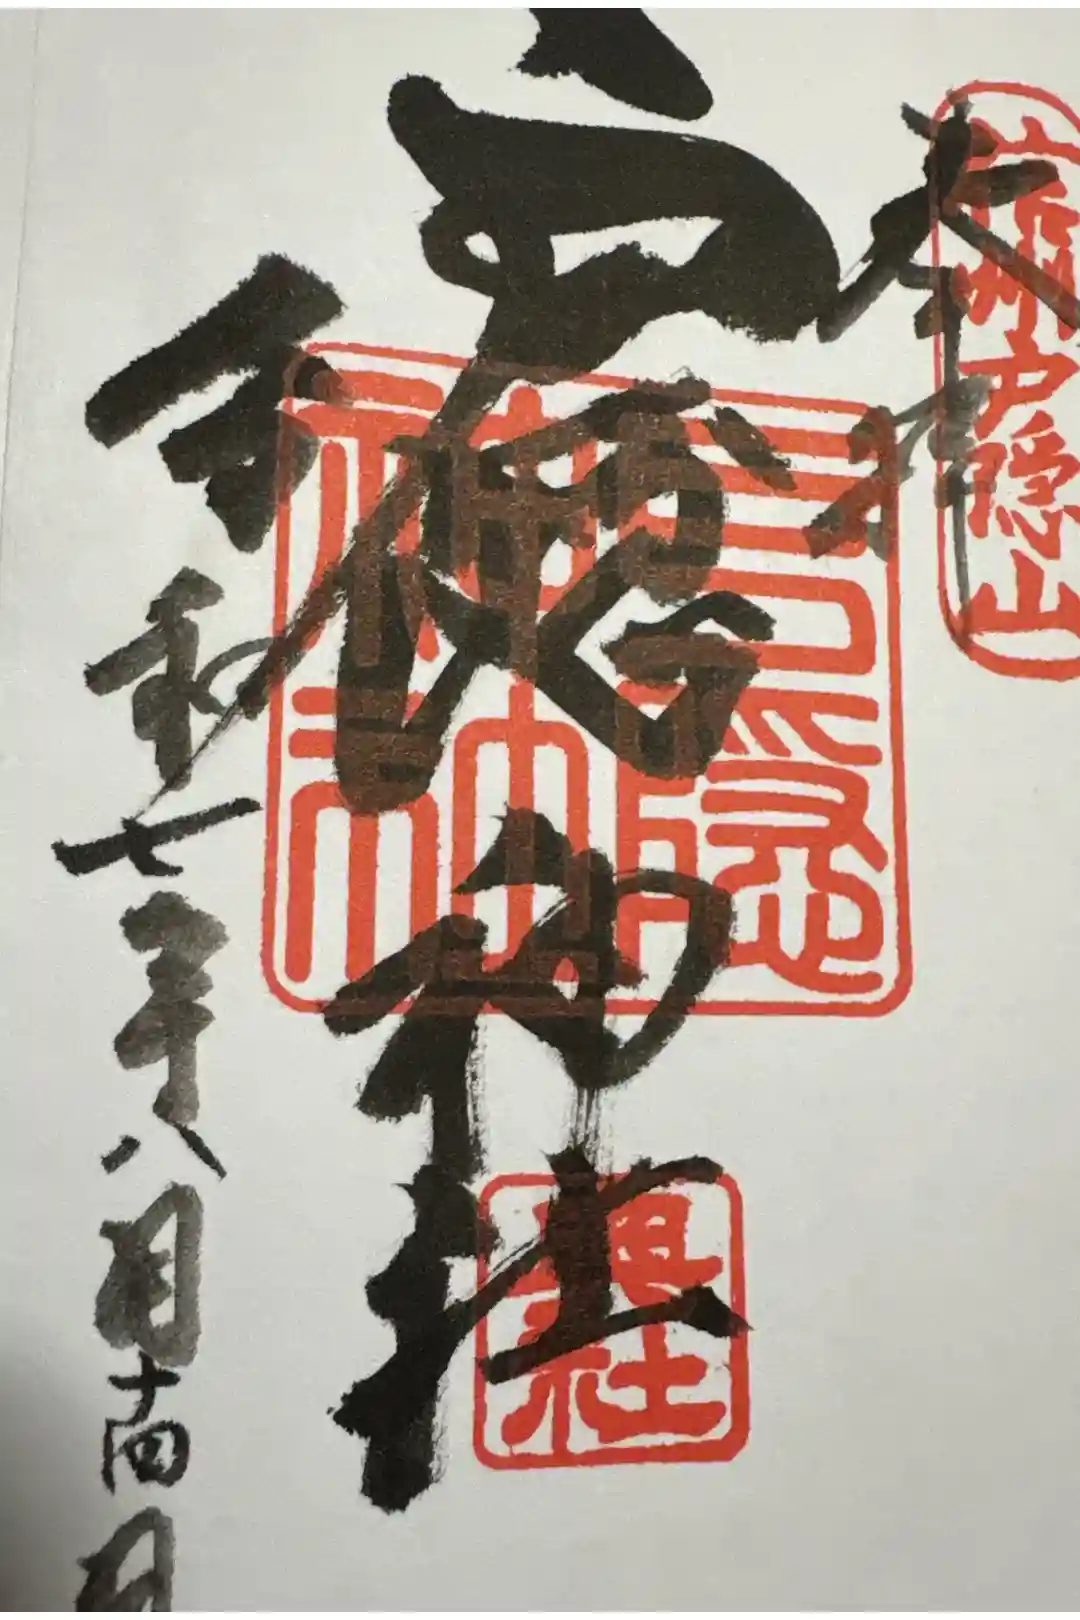 奉拝
信州戸隠山
戸隠神社
戸隠
神社
奥社
令和七年八月十四日